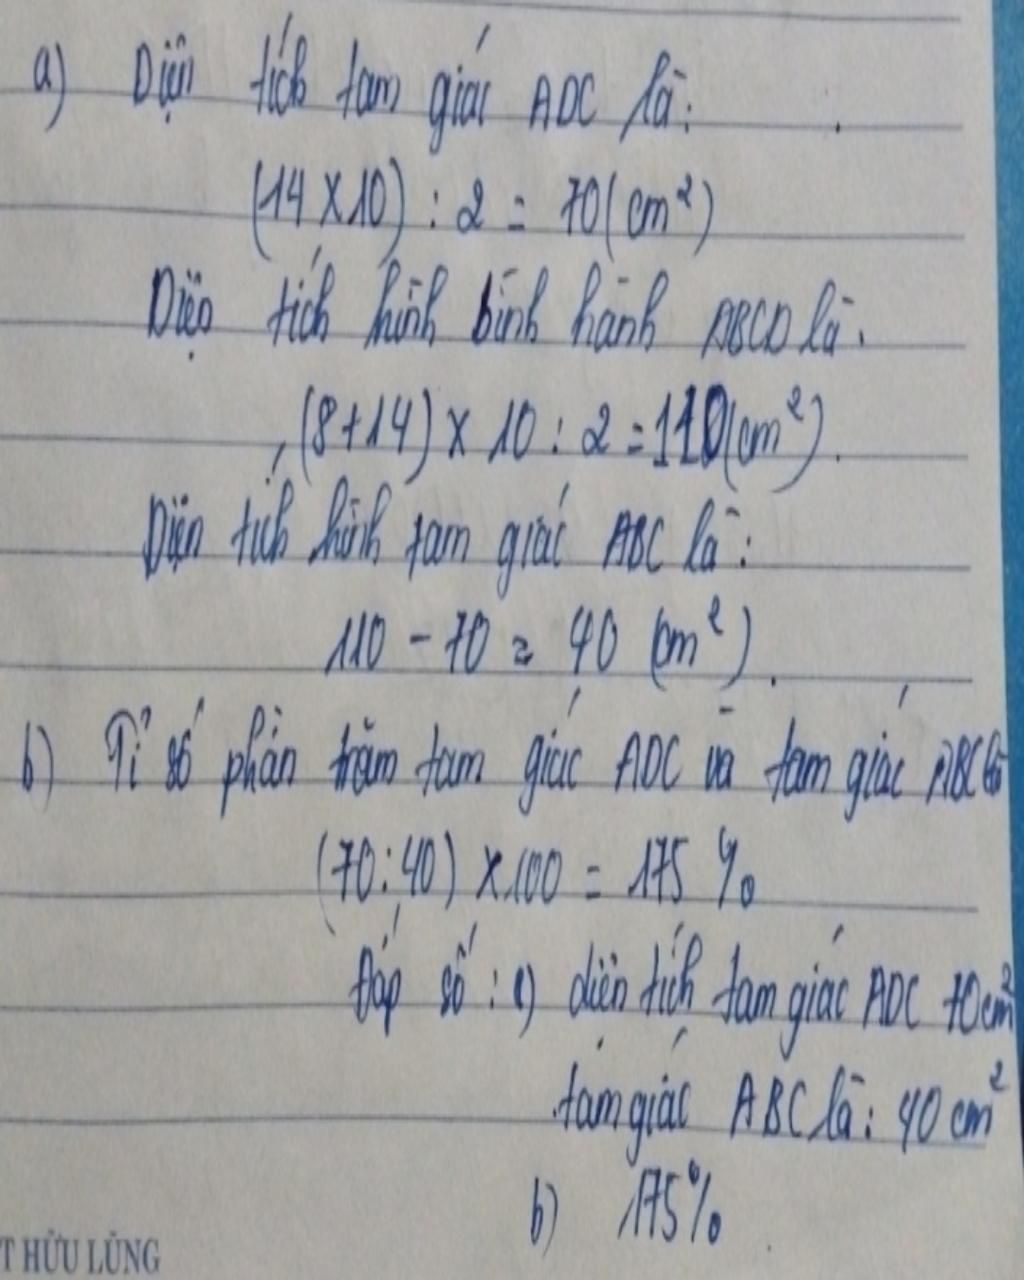 a) Diện tích tam giác ADC là:
(14 x 10) : 2 = 70 (cm²)
Diện tích hình bình hành ABCD là.
(8+14) x 10 : 2 = 110 (cm²).
Diện tích hình tam giác ABC là:
110 - 70 = 40 (cm²).
b) Tỉ số phần trăm tam giác ADC và tam giác ABC là
(70:40) x 100 = 175 %
Đáp số : a) diện tích tam giác ADC 70 cm²
tam giác ABC là: 40 cm²
b) 175%
T HỮU LŨNG